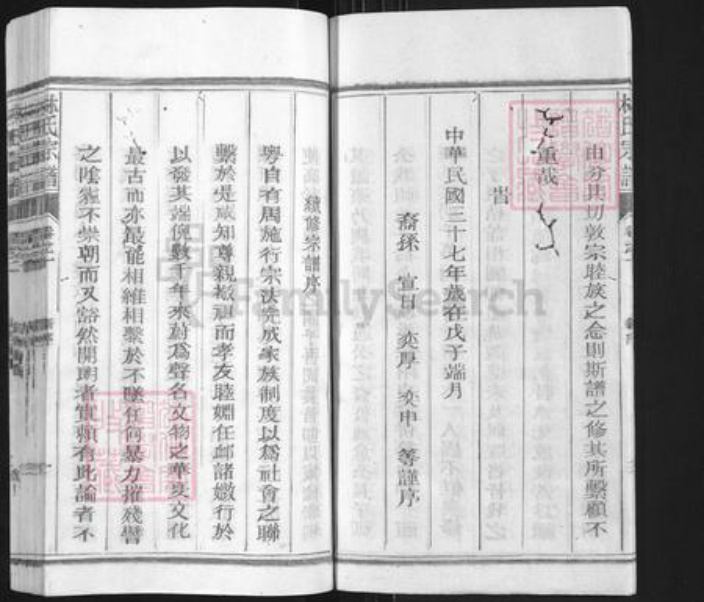 由分其切敦宗睦族之念則斯譜之修其所繫顧不
重哉
旹
中華民國三十七年歲在戊子端月
裔孫 宣日 奕厚 奕申 等謹序
續修宗譜序
粤自有周施行宗法完成家族制度以爲社會之聯
繫於是咸知尊親敬祖而孝友睦婣任卹諸媺行於
以發其端倪數千年來蔚爲聲名文物之華夏文化
最古而亦最能相維相繫於不墜任何暴力摧殘譬
之陰霾不崇朝而又豁然開朗者實賴有此論者不
林氏宗譜
FamilySearch